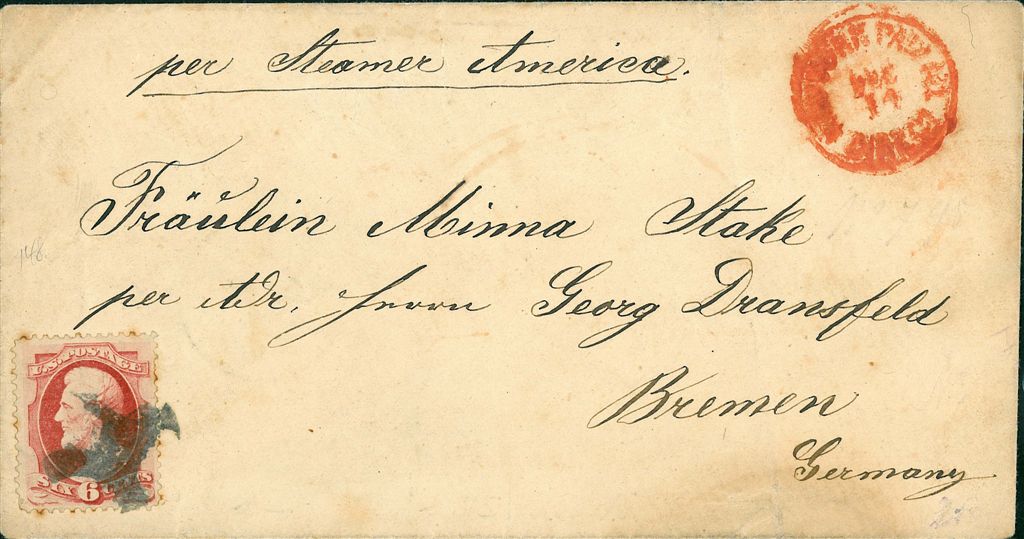 per Steamer America.
PAID ALL
DEC
14
DIRECT
Fräulein Minna Stake
per Adr. Herrn Georg Dransfeld
Bremen
Germany
U.S. POSTAGE
SIX 6 CENTS